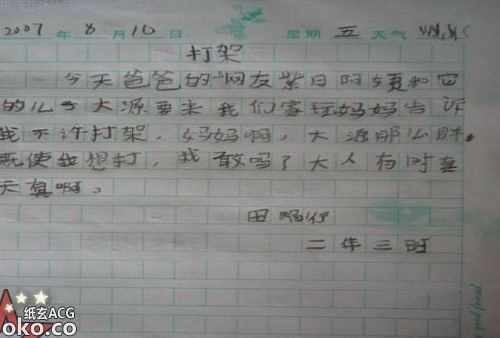 2007 年 8 月 10 日 星期 五 天气
打架
今天爸爸的网友紫日阿姨和它
的儿子大源要来我们家玩妈妈告诉
我不许打架，妈妈啊，大源那么胖，
既使我想打，我敢吗？大人有时真
天真啊。
田
二年三班
纸玄ACG
oko.co
good friend